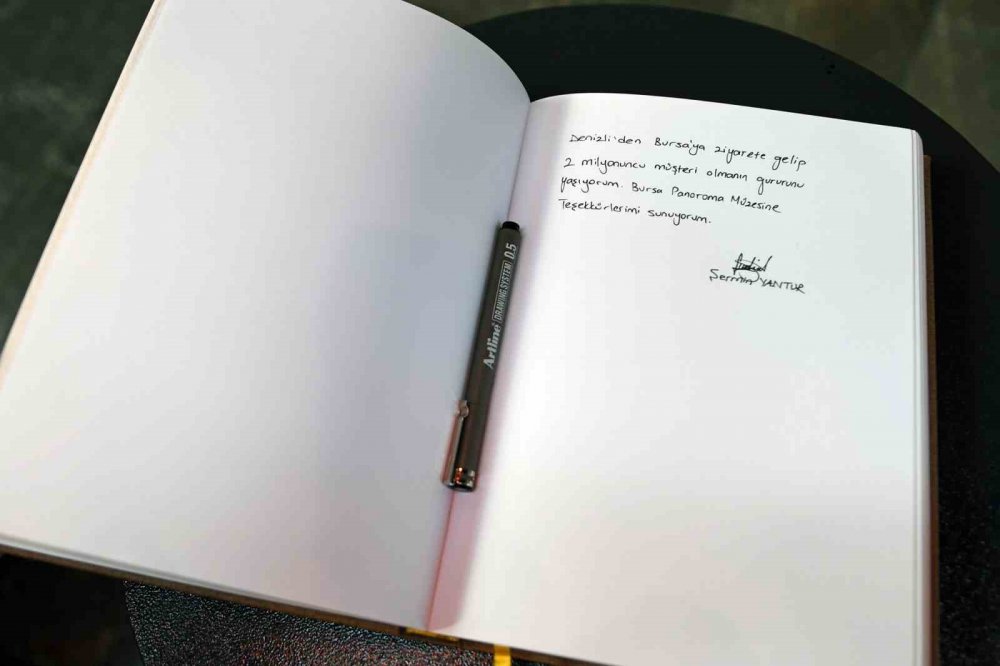 Denizli'den Bursa'ya ziyarete gelip
2 milyonuncu müşteri olmanın gururunu
yaşıyorum. Bursa Panorama Müzesine
Teşekkürlerimi sunuyorum.
Şermin YANTUR
Artline DRAWING SYSTEM 0.5